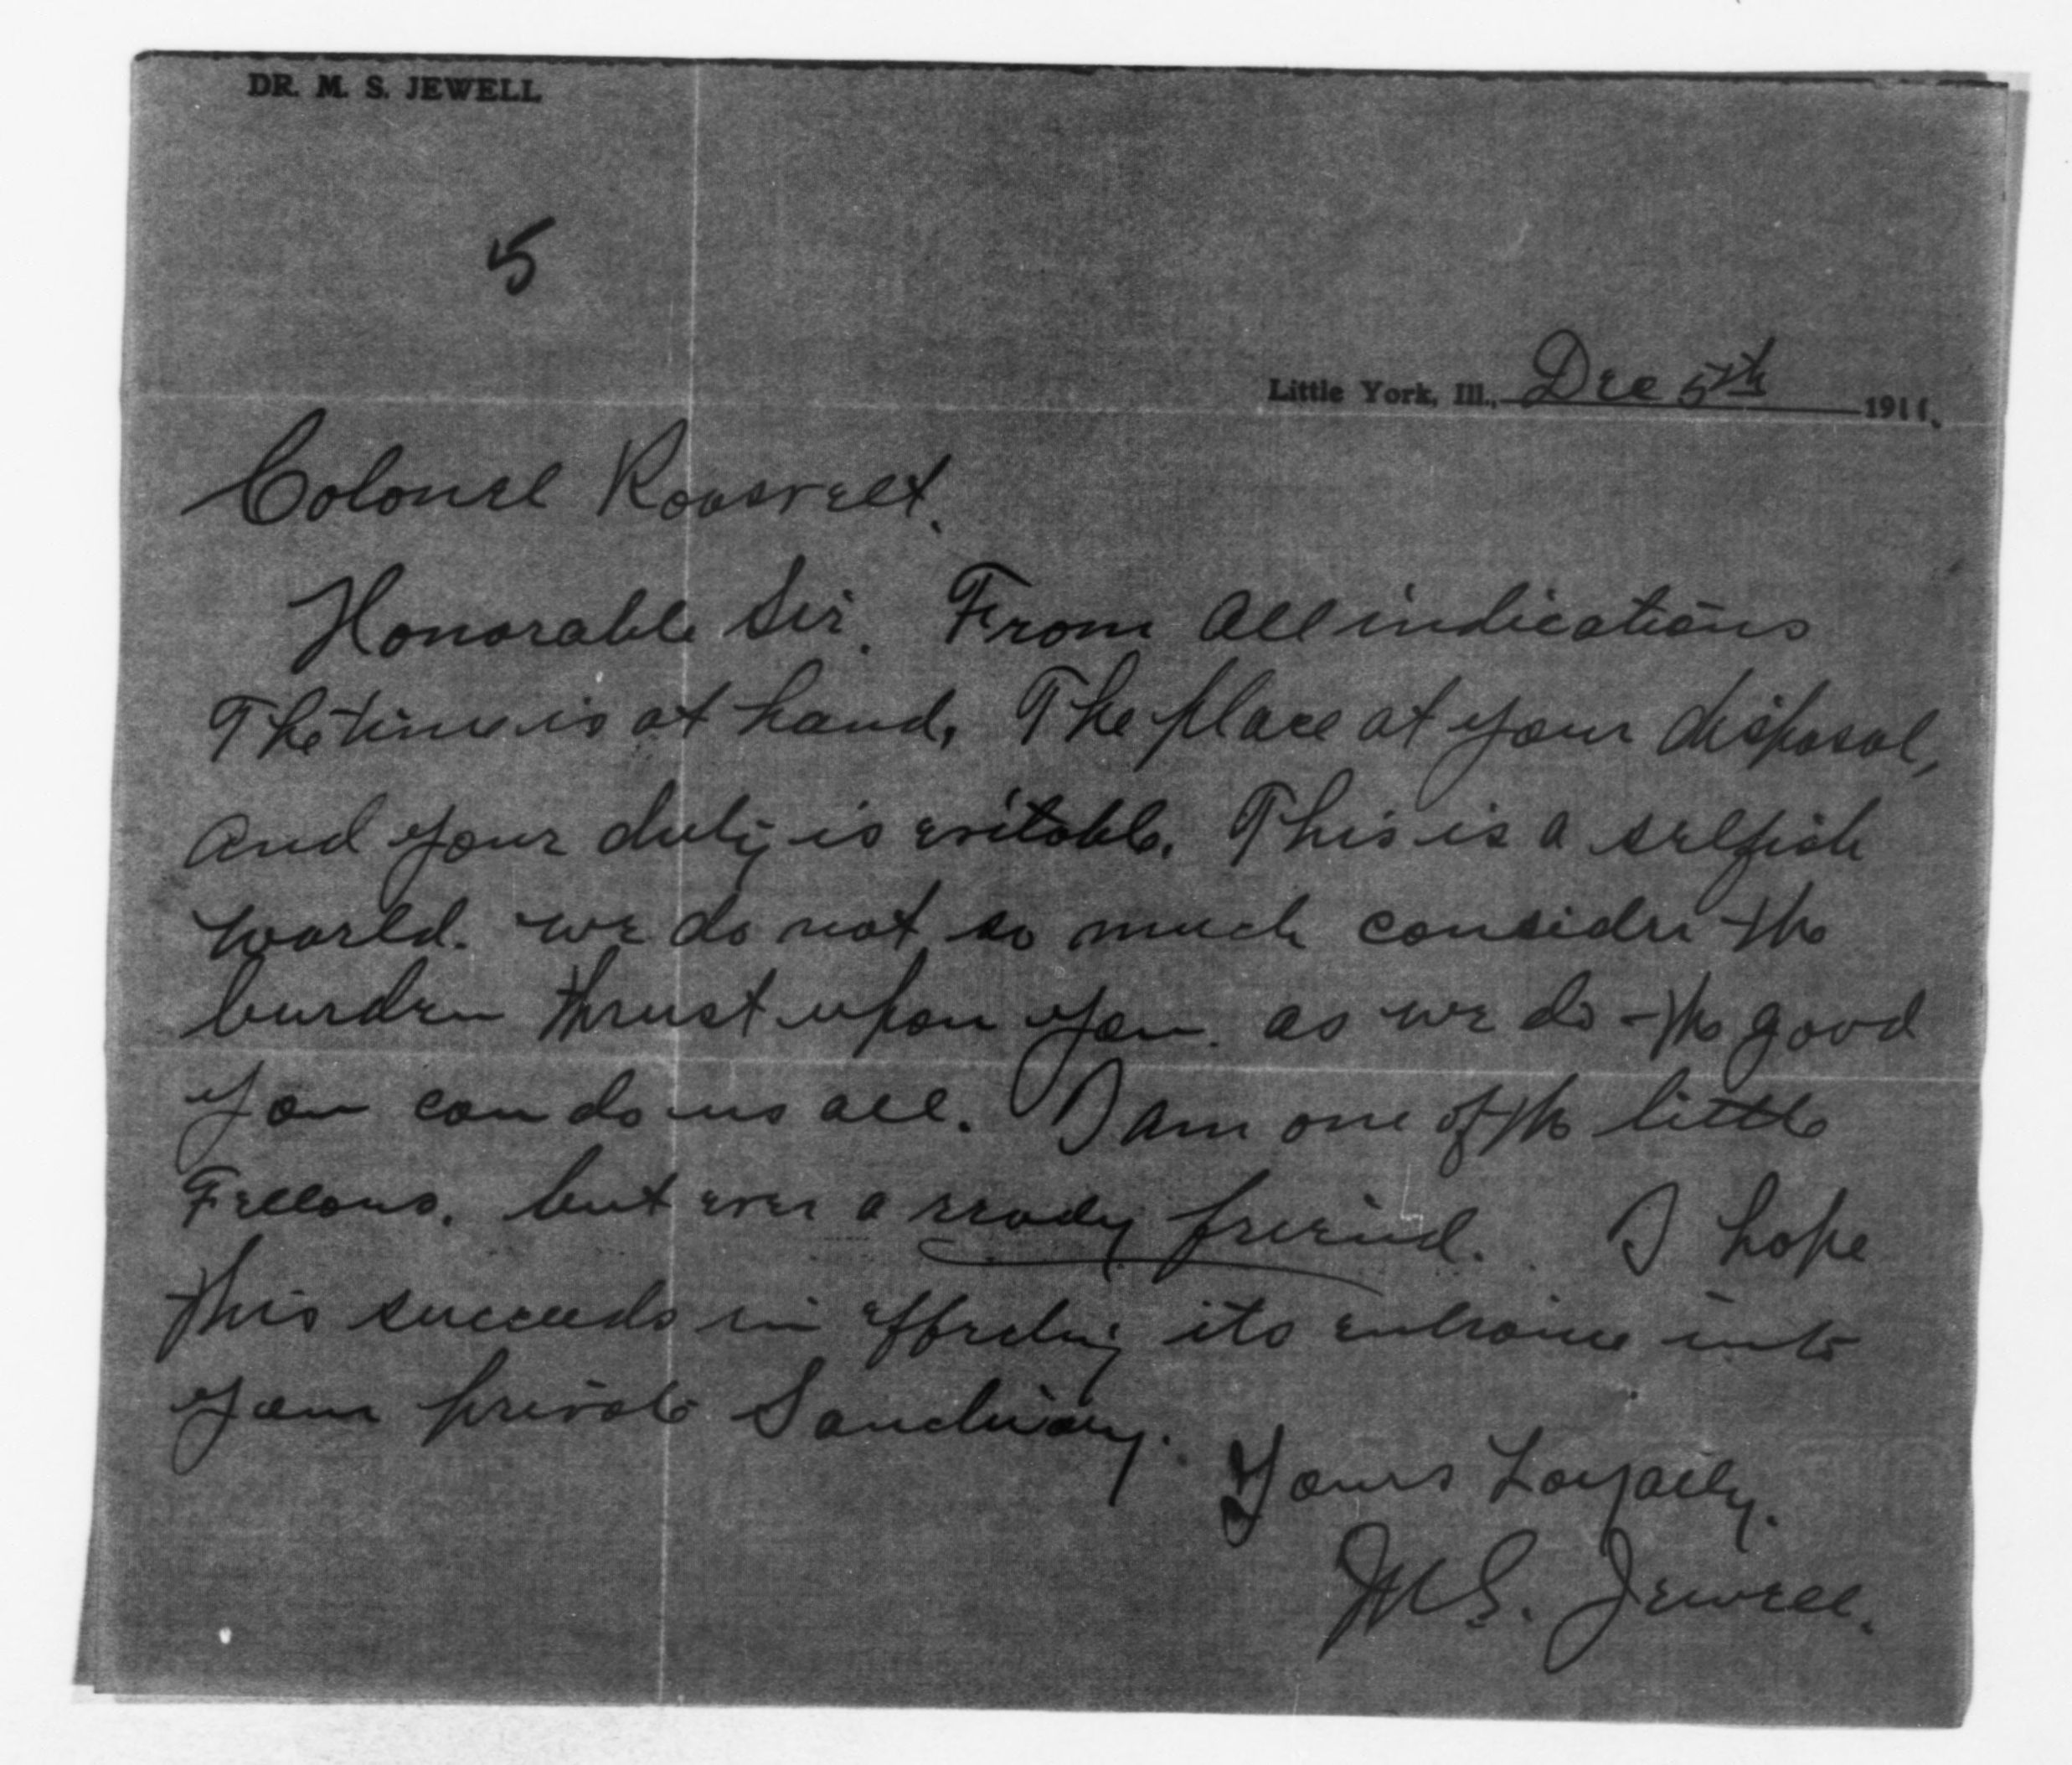 DR. M. S. JEWELL
5
Little York, Ill., Dec 5th 1911.
Colonel Roosevelt.
Honorable Sir. From all indications
The time is at hand, The place at your disposal,
and your duty is evitable. This is a selfish
world. we do not so much consider the
burden thrust upon you. as we do the good
you can do us all. I am one of the little
Fellows. but ever a ready friend. I hope
this succeeds in effecting its entrance into
your private Sanctuary.
Yours Loyally.
M S. Jewell.